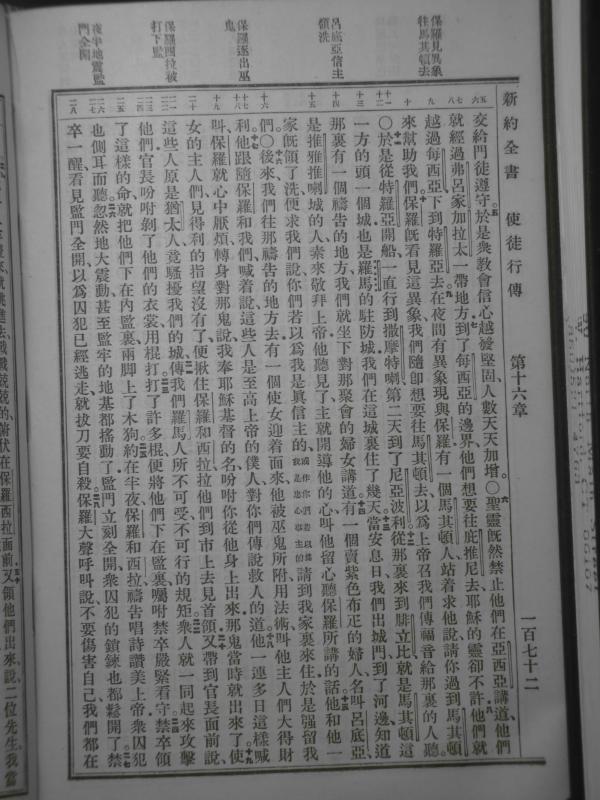 新約全書 使徒行傳 第十六章 一百七十二
保羅見異象
往馬其頓去
呂底亞信主
領洗
保羅逐出巫
鬼
保羅西拉被
打下監
夜半地震監
門全開
交給門徒遵守於是衆教會信心越發堅固人數天天加增○聖靈既然禁止他們在亞西亞講道他們
就經過弗呂家加拉太一帶地方到了每西亞的邊界他們想要往庇推尼去耶穌的靈卻不許他們就
越過每西亞下到特羅亞去在夜間有異象現與保羅有一個馬其頓人站着求他說請你過到馬其頓
來幫助我們保羅既看見這異象我們隨即想要往馬其頓去以爲上帝召我們傳福音給那裏的人聽
○於是從特羅亞開船一直行到撒摩特喇第二天到了尼亞波利從那裏來到腓立比就是馬其頓這
一方的頭一個城也是羅馬的駐防城我們在這城裏住了幾天當安息日我們出城門到了河邊知道
那裏有一個禱告的地方我們就坐下對那聚會的婦女講道有一個賣紫色布疋的婦人名叫呂底亞
是推雅推喇城的人素來敬拜上帝他聽見了主就開導他的心叫他留心聽保羅所講的話他和他一
家既領了洗便求我們說你們若以爲我是眞信主的或作你們若以爲我是忠心事主的請到我家裏來住於是强留我
們○後來我們往那禱告的地方去有一個使女迎着面來他被巫鬼所附用法術叫他主人們大得財
利他跟隨保羅和我們喊着說這些人是至高上帝的僕人對你們傳說救人的道他一連多日這樣喊
叫保羅就心中厭煩轉身對那鬼說我奉耶穌基督的名吩咐你從他身上出來那鬼當時就出來了使
女的主人們見得利的指望沒有了便揪住保羅和西拉拉他們到市上去見首領又帶到官長面前說
這些人原是猶太人竟騷擾我們的城傳我們羅馬人所不可受不可行的規矩衆人就一同起來攻擊
他們官長吩咐剝了他們的衣裳用棍打打了許多棍便將他們下在監裏囑咐禁卒嚴緊看守禁卒領
了這樣的命就把他們下在內監裏兩脚上了木狗約在半夜保羅和西拉禱告唱詩讚美上帝衆囚犯
也側耳而聽忽然地大震動甚至監牢的地基都搖動了監門立刻全開衆囚犯的鎖鍊也都鬆開了禁
卒一醒看見監門全開以爲囚犯已經逃走就拔刀要自殺保羅大聲呼叫說不要傷害自己我們都在
俯伏在保羅西拉面前又領他們出來說二位先生我當